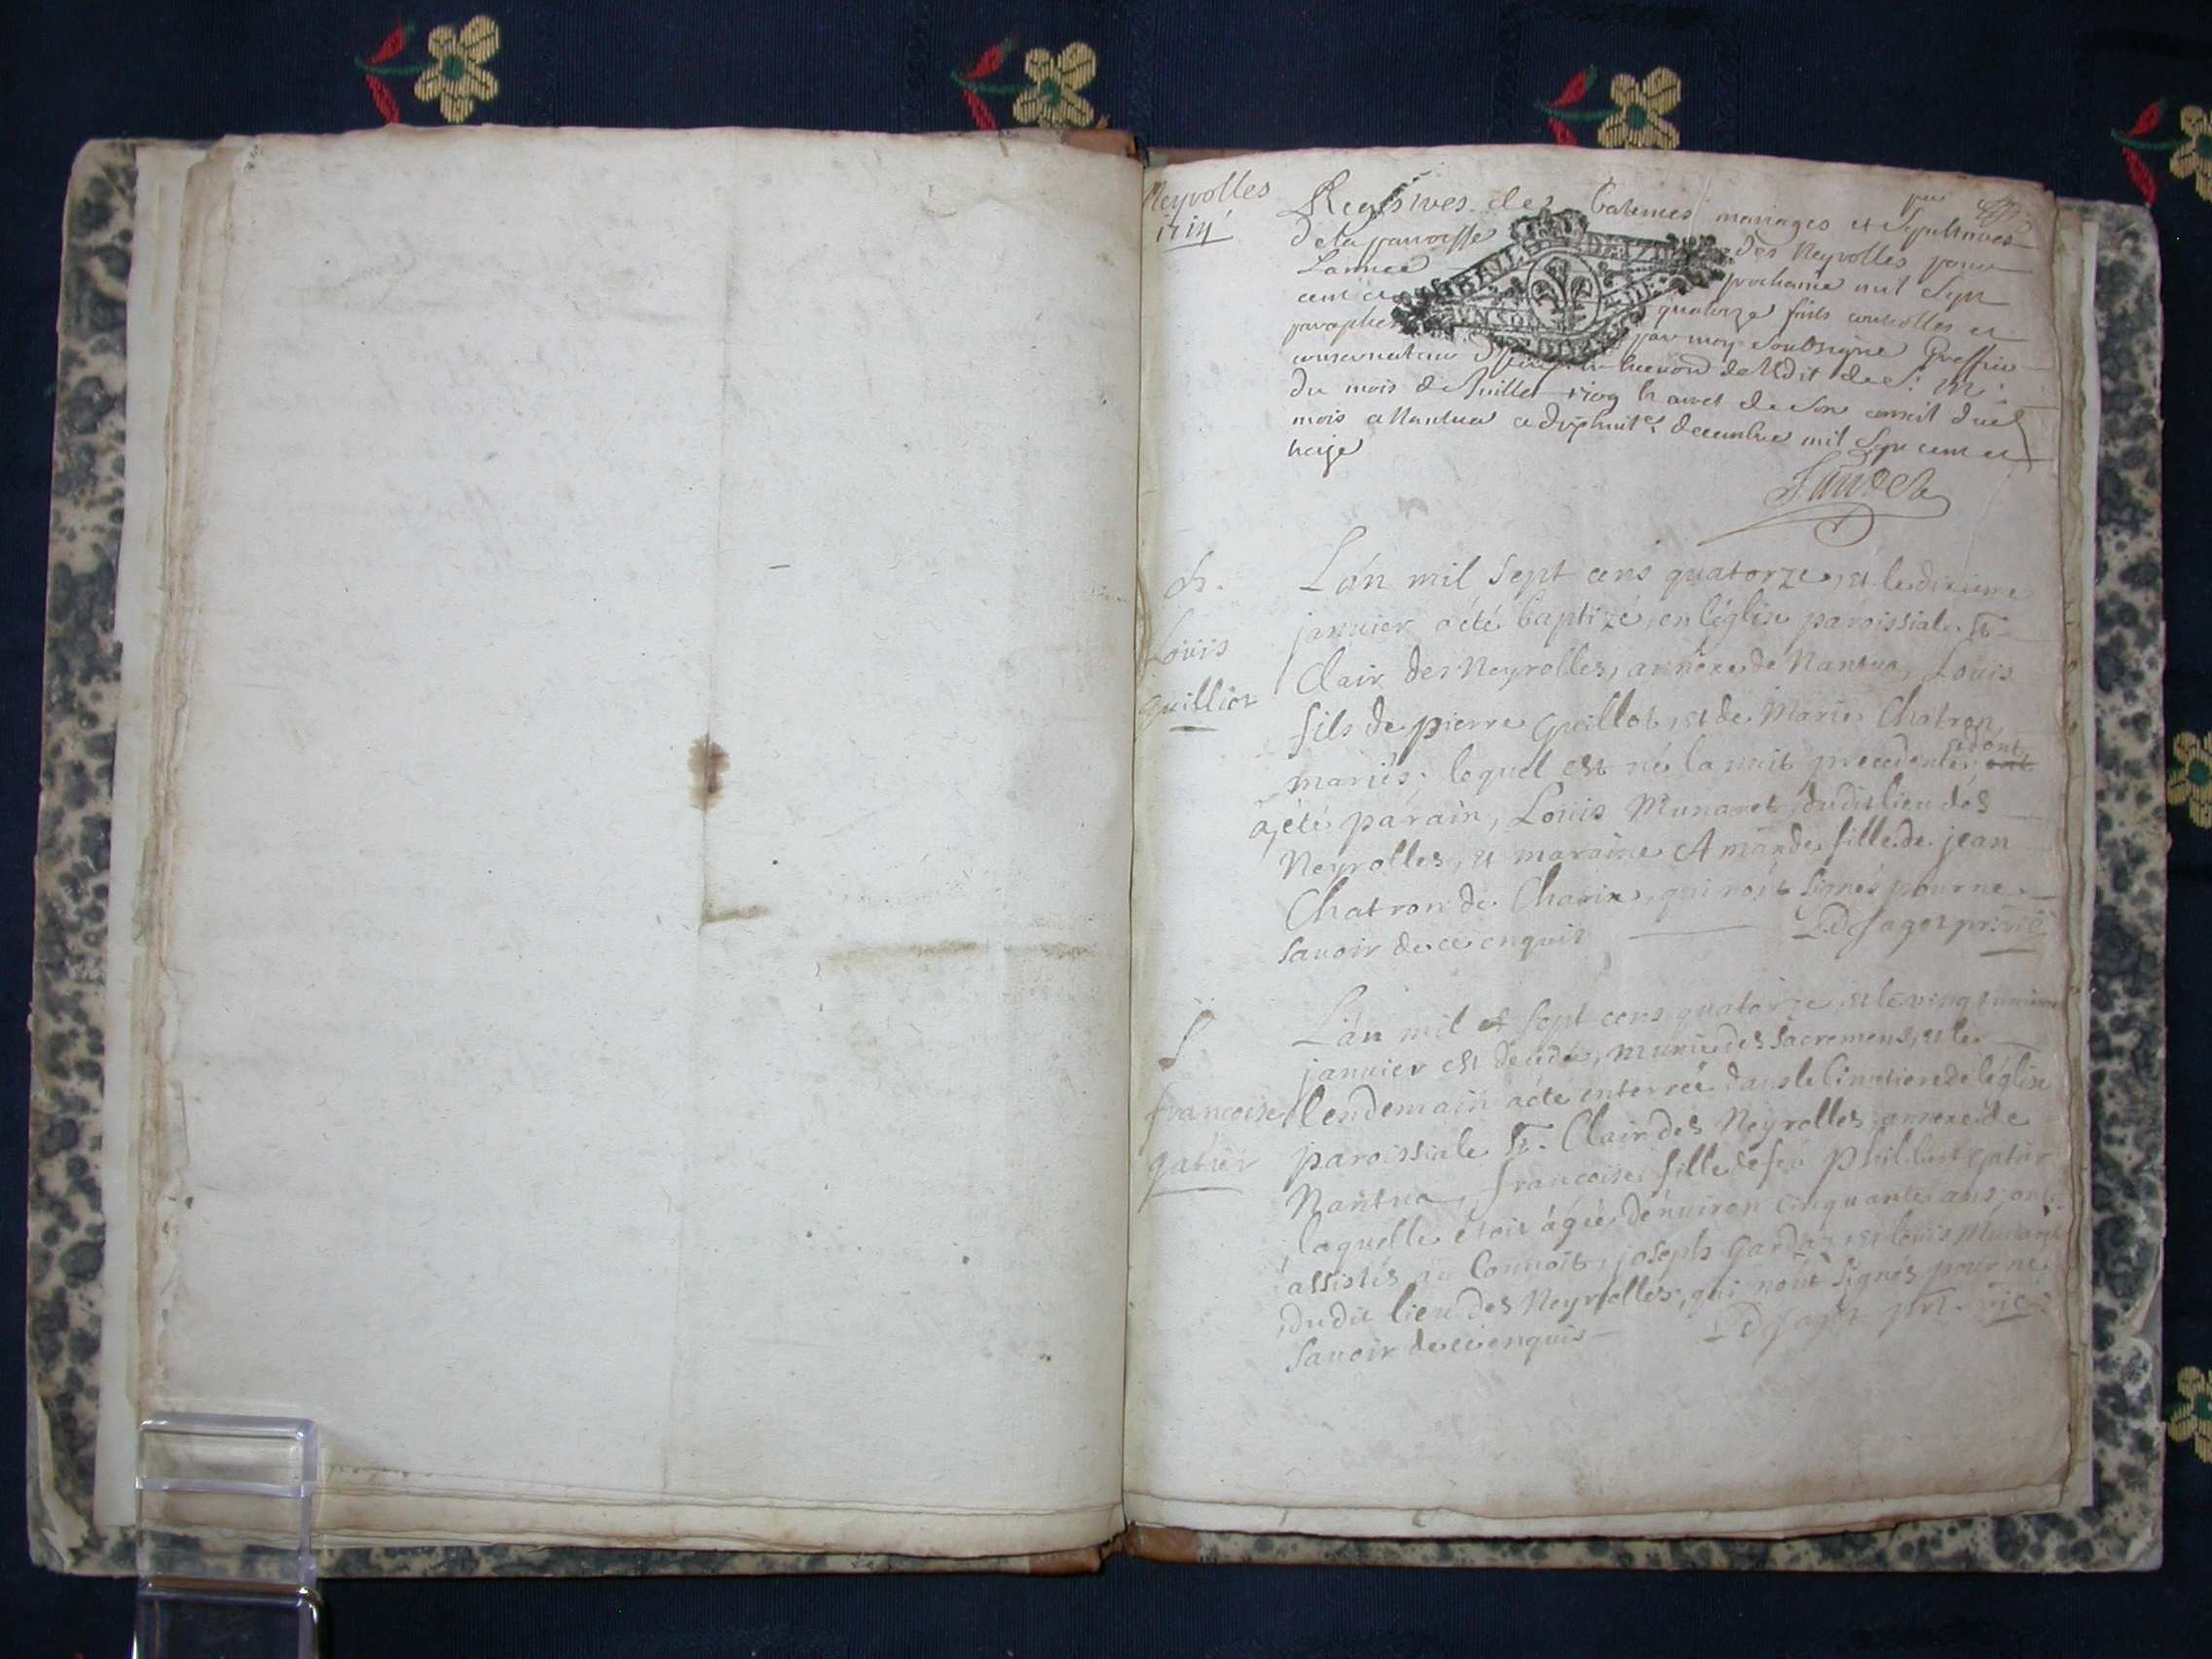 Neyrolles
1714
Registres des batemes mariages et Sepultures
de la parroisse des Neyrolles pour
Lannee prochaine mil Sept
cent et quatorze
paraphes par moy Soubsigné Greffier
conservateur de Ledit de S. M.
du mois de Juillet 1709 & arret de Son conseil dud
mois a Nantua ce dixhuit decembre mil Sept cent et
treize
B.
Louis
guilliot
L'an mil sept cens quatorze, et le dixieme
janvier a été baptizé, en l'église paroissiale St
Clair des Neyrolles, annexe de Nantua, Louis
fils de pierre guillot, et de Marie Chatron
mariés; lequel est né la nuit precedente, dont
a été parain, Louis Munaret dudit lieu des
Neyrolles, et maraine Amande fille de jean
Chatron de Charix, qui n'ōt signés pour ne
savoir de ce enquis
S
francoise
gatier
L'an mil et sept cens quatorze, et le vingt
janvier est decedée, munie des sacremens, et le
lendemain a été enterrée dans le Cimetiere de l'église
paroissiale St. Clair des Neyrolles annexe de
Nantua, francoise fille de feu Philibert gatier
laquelle étoit agée d'enuiron cinquante ans, ont
assistés au Convoit, joseph et louis Munaret
dudit lieu des Neyrolles, qui n'ont signés pour ne
savoir de ce enquis